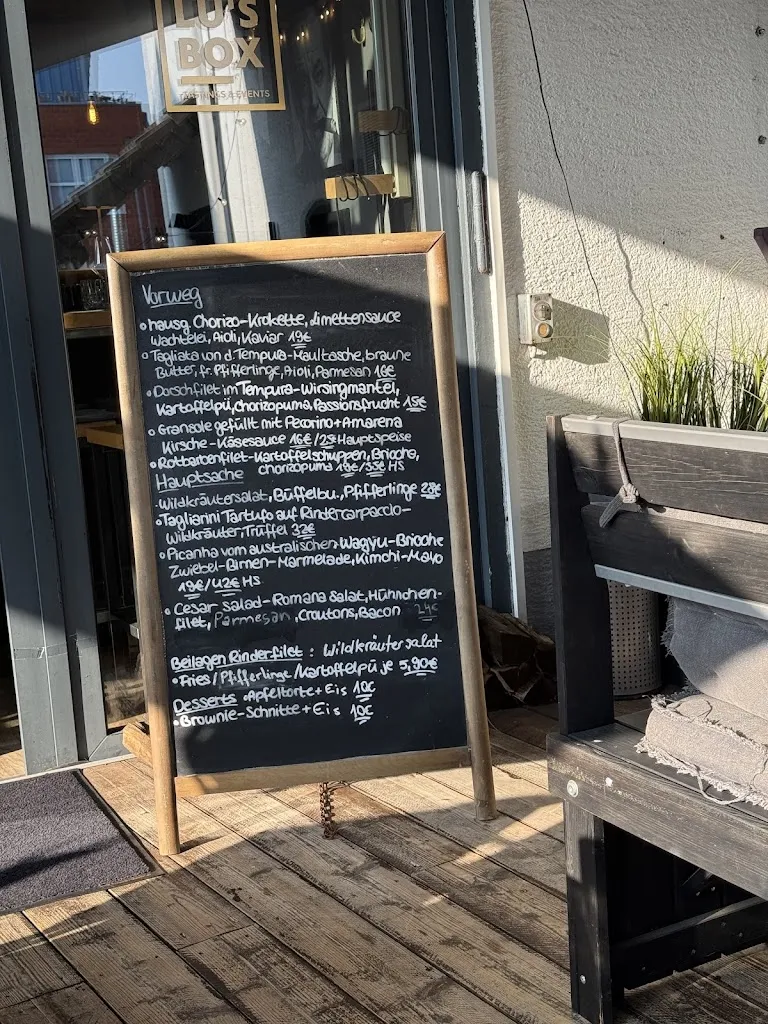 LU'S
BOX
TASTINGS & EVENTS
Vorweg
hausg. Chorizo-Krokette, Limettensauce
Wachtelei, Aioli, Kaviar 19€
Tagliata von d. Tempura-Maultasche, braune
Butter, fr. Pfifferlinge, Aioli, Parmesan 16€
Dorschfilet im Tempura-Wirsingmantel,
Kartoffelpü, Chorizopuma, Passionsfrucht 15€
Granade gefüllt mit Pecorino + Amarena
Kirsche-Käsesauce 16€/25€ Hauptspeise
Rotbarbenfilet-Kartoffelschuppen, Brioche,
Hauptsache chorizopuma 19€/35€ HS
Wildkräutersalat, Büffelbu., Pfifferlinge 28€
Tagliarini Tartufo auf Rindercarpaccio-
Wildkräuter, Trüffel 32€
Picanha vom australischen Wagyu-Brioche
Zwiebel-Birnen-Marmelade, Kimchi-Mayo
19€/42€ HS
Cesar Salad-Romana Salat, Hühnchen-
filet, Parmesan, Croutons, Bacon 24€
Beilagen Rinderfilet: Wildkräutersalat
Fries/Pfifferlinge/Kartoffelpü je 5,90€
Desserts • Apfeltorte + Eis 10€
Brownie-Schnitte + Eis 10€